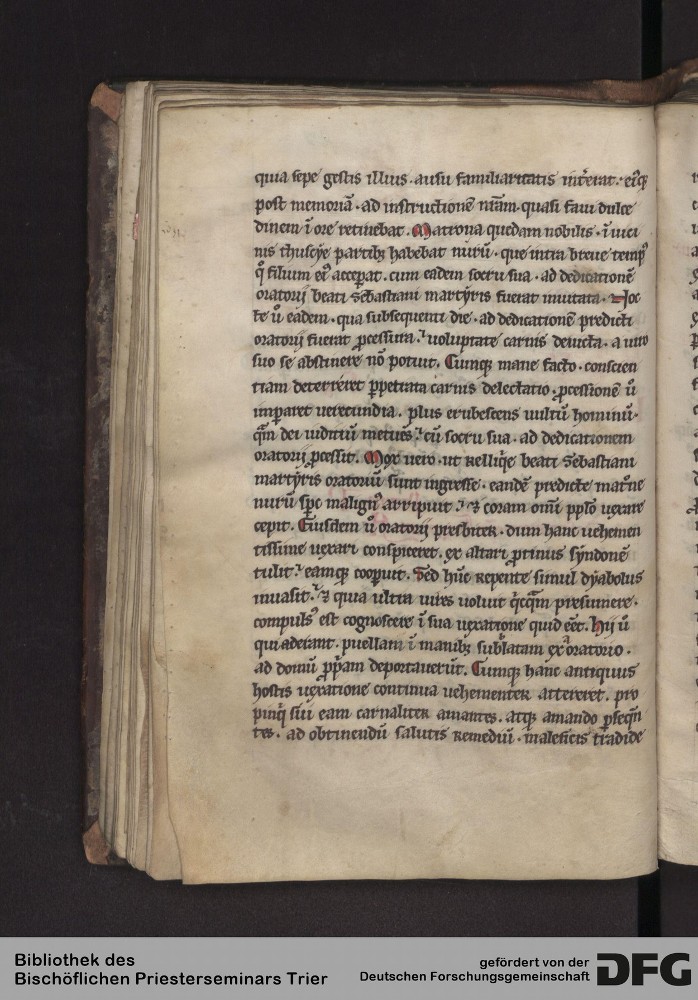 quia sepe gestis illius · ausu familiaritatis int̄erat · eiꝰq
post memoriā · ad instructionē nr̄am · quasi faui dulce
dinem ī ore retinebat. Matrona quedam nobilis · ī uici
nis thuscȳe partibꝫ habebat nurū · que intra breue tempꝰ
qͦ filium eiꝰ acceꝑat. cum eadem socru sua · ad dedicationē
oratorij beati Sebastiani martẏris fuerat inuitata · Noc
te ū eadem · qua subsequenti die · ad dedicationem predicti
oratorij fuerat ꝓcessura · uoluptate carnis deuicta · a uiro
suo se abstinere nō potuit. Cumqꝫ mane facto · conscien
tiam deterreret ꝑpetrata carnis delectatio · ꝓcessionē ū
imparet uerecundia · plus erubescens uultū hominū ·
qͣm dei iudiciū metuēs · cū socru sua · ad dedicationem
oratorij ꝓcessit. Mox uero · ut relliqͥe beati Sebastiani
martẏris oratoriū sunt ingresse · eandē predicte matͦne
nurū sp̄c malignꝰ arripuit · ⁊ coram omī pp̄lo uexare
cepit. Eiusdem ū oratorij presbiter · dum hanc uehemen
tissime uexari conspiceret · ex altari ꝓtinus sẏndonē
tulit · eamqꝫ cooꝑuit. Sed hūc repente simul dẏabolus
inuasit · ⁊ quia ultra uires uoluit qͥcqͣm presumere ·
compulsꝰ est cognoscere ī sua uexatione quid eēt. Hij ū
qui aderant · puellam ī manibꝫ sublatam ex oratorio ·
ad domū ꝓpͥam deportauerūt. Cumqꝫ hanc antiquus
hostis uexatione continua uehementer attereret · pro
pinqͥ sui eam carnaliter amantes · atqꝫ amando ꝑseqͣn
tes · ad obtinendū salutis remediū · maleficis tradide
Bibliothek des
Bischöflichen Priesterseminars Trier
gefördert von der
Deutschen Forschungsgemeinschaft
DFG